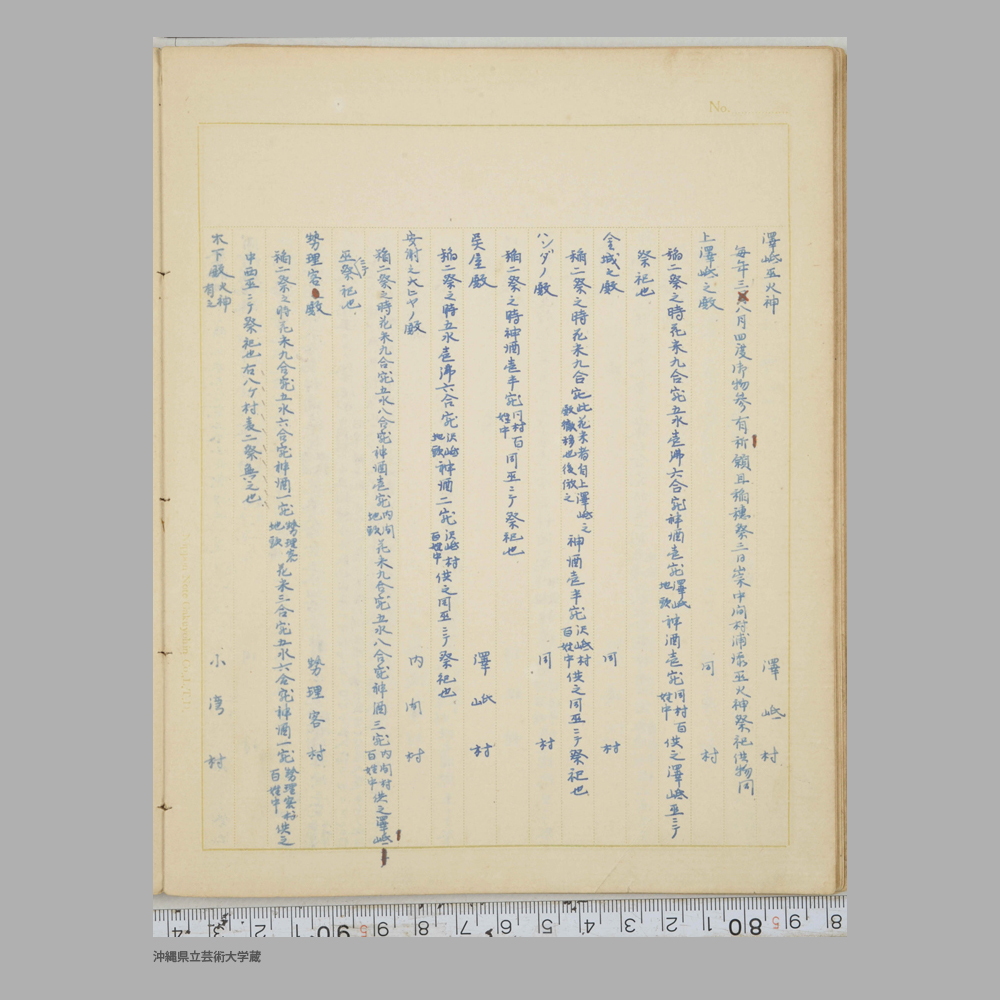 No.
澤岻巫火神 澤岻村
毎年三八月四度御物參有祈願且稲穂祭三日崇中間村浦添巫火神祭祀供物同
上澤岻之殿 同村
稲二祭之時花米九合宛五水壱沸六合宛神酒壱宛澤岻地頭神酒壱宛同村百姓中供之澤岻巫ニテ
祭祀也
金城之殿 同村
稲二祭之時花米九合宛此花米者自上澤岻之殿徹移也後倣之神酒壱半宛沢岻村百姓中供之同巫ニテ祭祀也
ハンダノ殿 同村
稲二祭之時神酒壱半宛同村百姓中同巫ニテ祭祀也
呉屋殿 澤岻村
稲二祭之時五水壱沸六合宛沢岻地頭神酒二宛沢岻村百姓中供之同巫ニテ祭祀也
安謝之大ヒヤノ殿 内間村
稲二祭之時花米九合宛五水八合宛神酒壱宛内間地頭花米九合宛五水八合宛神酒三宛内間村百姓中供之澤岻
巫ニテ祭祀也
勢理客殿 勢理客村
稲二祭之時花米九合宛五水六合宛神酒一宛勢理客地頭花米三合宛五水六合宛神酒一宛勢理客村百姓中供之
中西巫ニテ祭祀也右八ケ村麦二祭無之也
木下殿火神有之 小湾村
沖縄県立芸術大学蔵